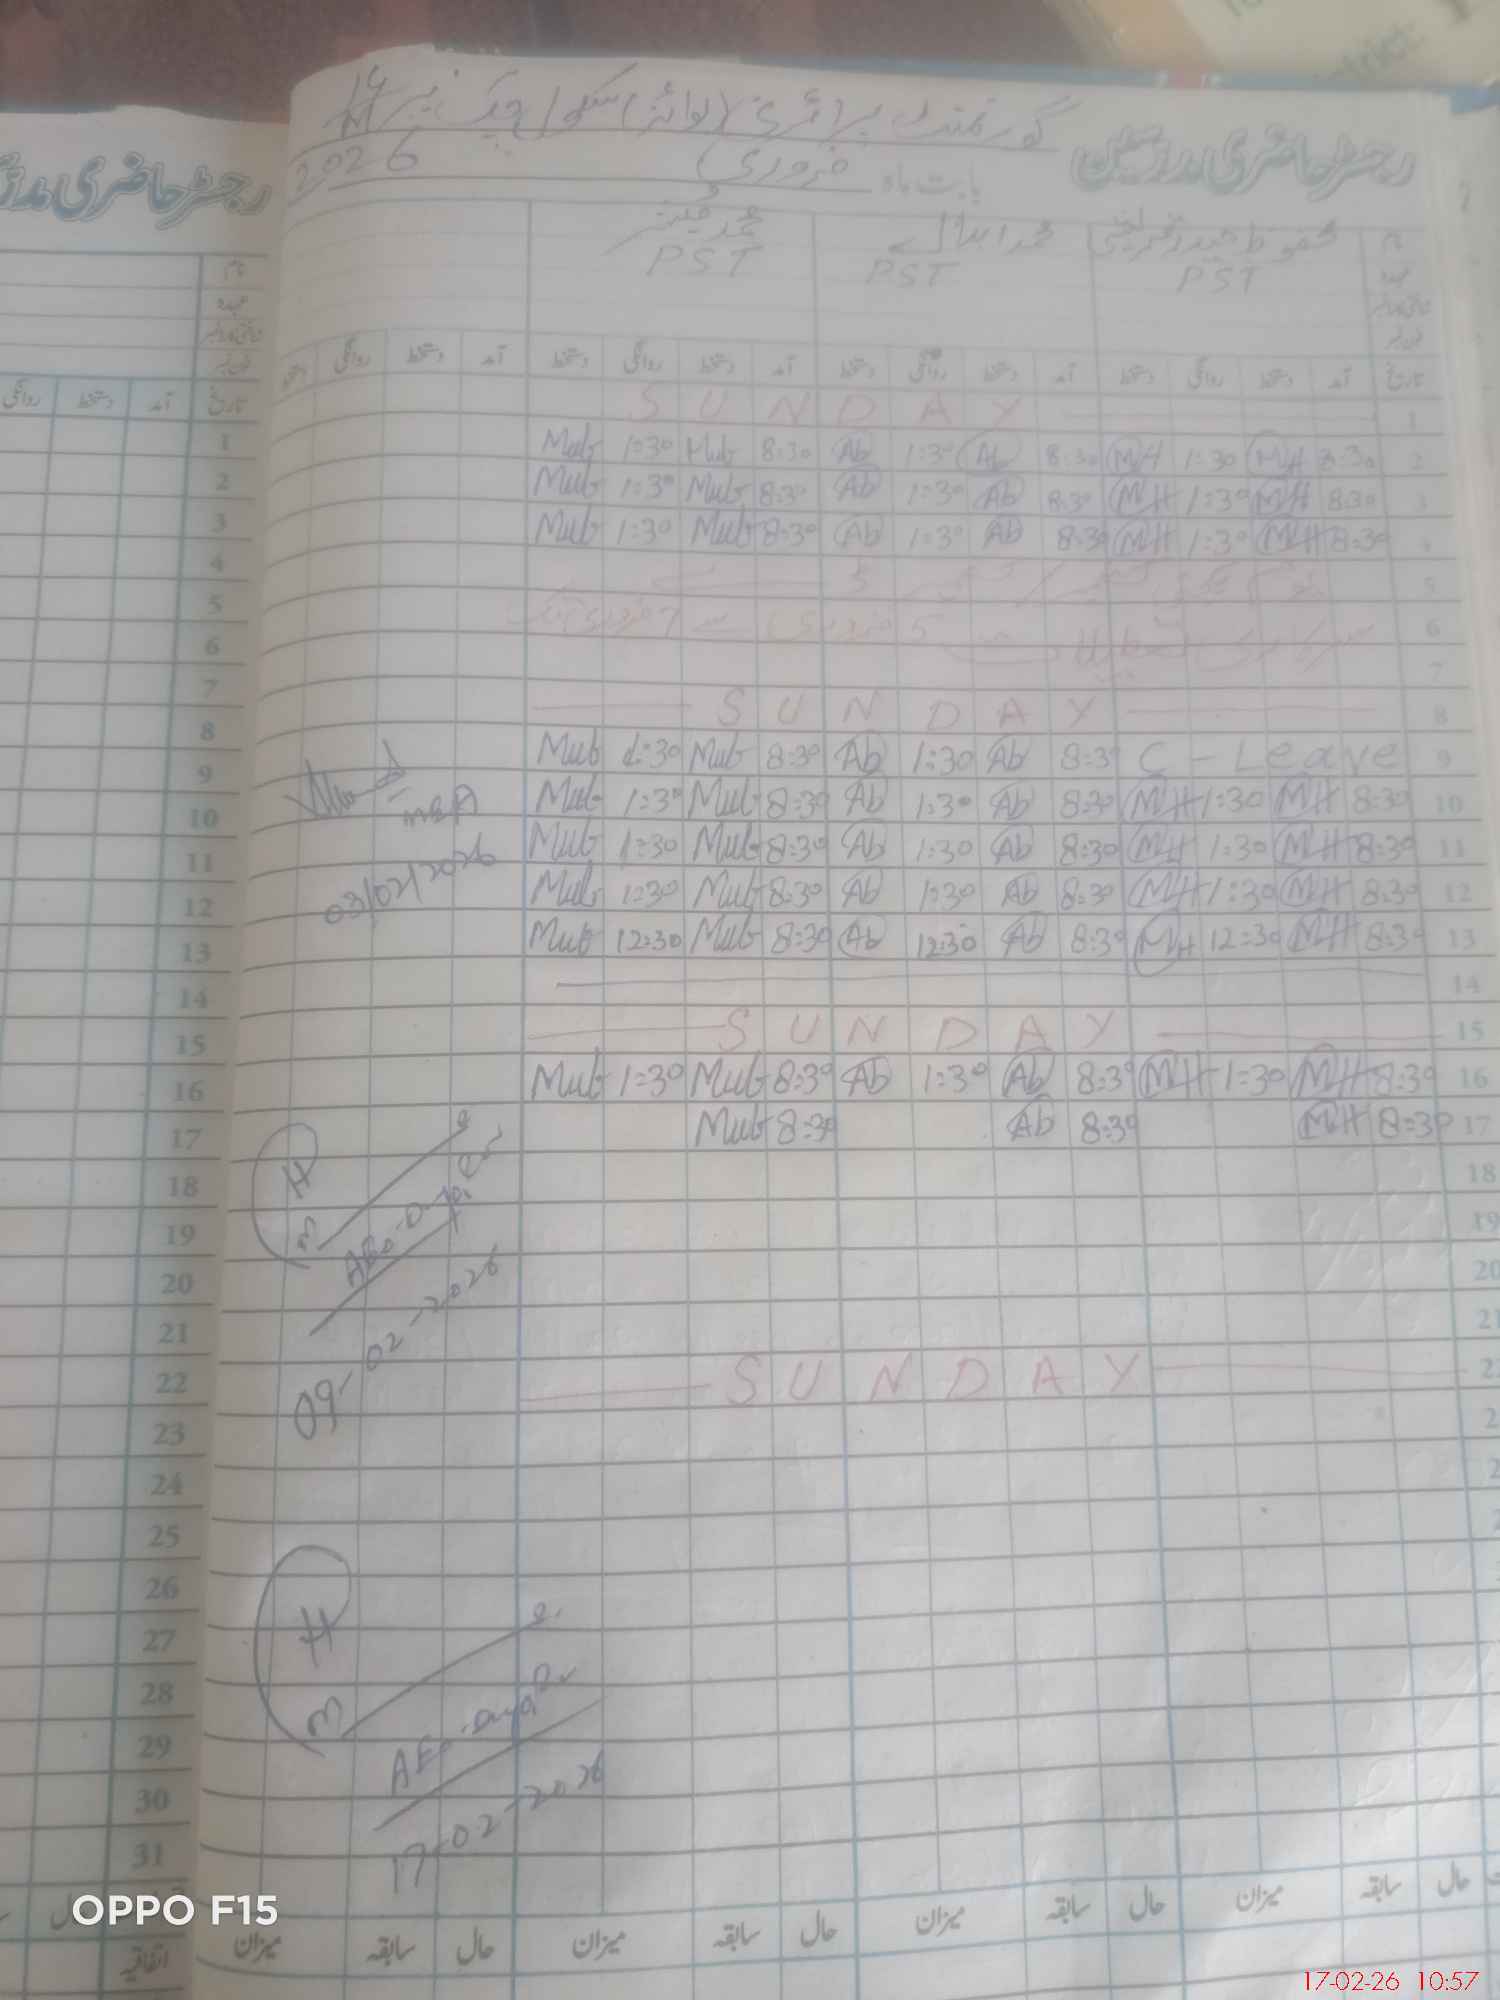 رجسٹر حاضری مدرسین گورنمنٹ پرائمری (بوائز) سکول چک نمبر 14/M
بابت ماہ فروری 2026
نام
PST PST PST
عہدہ
تاریخ آمد دستخط روانگی دستخط آمد دستخط روانگی دستخط آمد دستخط روانگی دستخط آمد دستخط روانگی دستخط
1 SUNDAY
2 8:30 MH 1:30 MH 8:30 Ab 1:30 Ab 8:30 Mub 1:30 Mub
3 8:30 MH 1:30 MH 8:30 Ab 1:30 Ab 8:30 Mub 1:30 Mub
4 8:30 MH 1:30 MH 8:30 Ab 1:30 Ab 8:30 Mub 1:30 Mub
5
6 5 فروری سے 7 فروری تک
7 سرکاری تعطیلات
8 SUNDAY
9 C - Leave 8:30 Ab 1:30 Ab 8:30 Mub 1:30 Mub
10 8:30 MH 1:30 MH 8:30 Ab 1:30 Ab 8:30 Mub 1:30 Mub
11 8:30 MH 1:30 MH 8:30 Ab 1:30 Ab 8:30 Mub 1:30 Mub
12 8:30 MH 1:30 MH 8:30 Ab 1:30 Ab 8:30 Mub 1:30 Mub
13 8:30 MH 12:30 MH 8:30 Ab 12:30 Ab 8:30 Mub 12:30 Mub
14
15 SUNDAY
16 8:30 MH 1:30 MH 8:30 Ab 1:30 Ab 8:30 Mub 1:30 Mub
17 8:30 MH 8:30 Ab 8:30 Mub
18
19
20
21
22 SUNDAY
MEA
03/02/2026
H
AEO
09-02-2026
H
AEO
17-02-2026
حال سابقہ میزان حال سابقہ میزان حال سابقہ میزان
رجسٹر حاضری
نام
عہدہ
تاریخ آمد دستخط روانگی
1
2
3
4
5
6
7
8
9
10
11
12
13
14
15
16
17
18
19
20
21
22
23
24
25
26
27
28
29
30
31
اتفاقیہ
OPPO F15
17-02-26 10:57